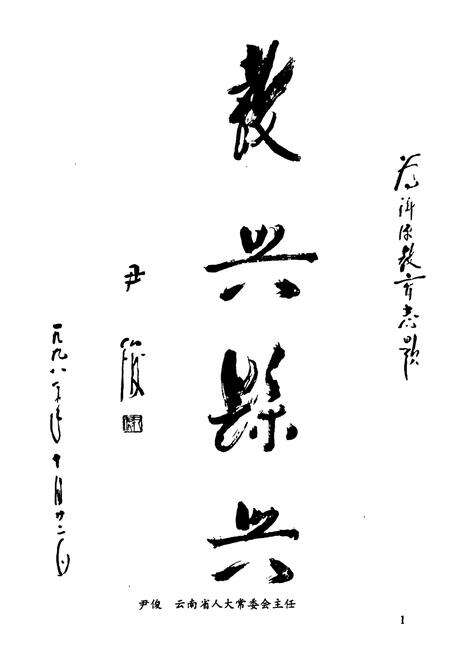 为洱源教育志题
教兴縣兴
尹俊
一九九八年十月廿二日
尹俊 云南省人大常委会主任
1